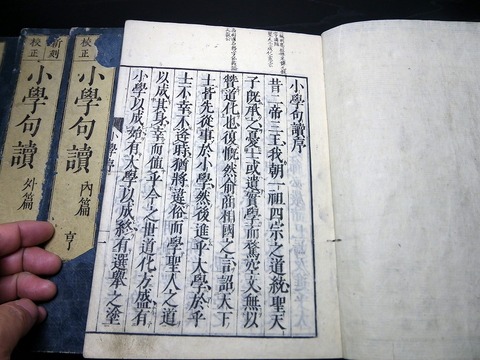 小學句讀序
昔二帝三王我朝一祖四宗之道統聖天
子旣承之憂士或遺質學而鶩空文無以
贊道化也復慨然俞商相國之言詔天下
士皆先從事於小學然後進乎大學於乎
士不幸不逢時猶將違俗而學聖人之道
以成其身幸而値乎今之世道化方盛有
小學以成始有大學以成終有選舉之塗
小學序
一
校正
小學句讀
內篇
亨
新刻
校正
小學句讀
外篇